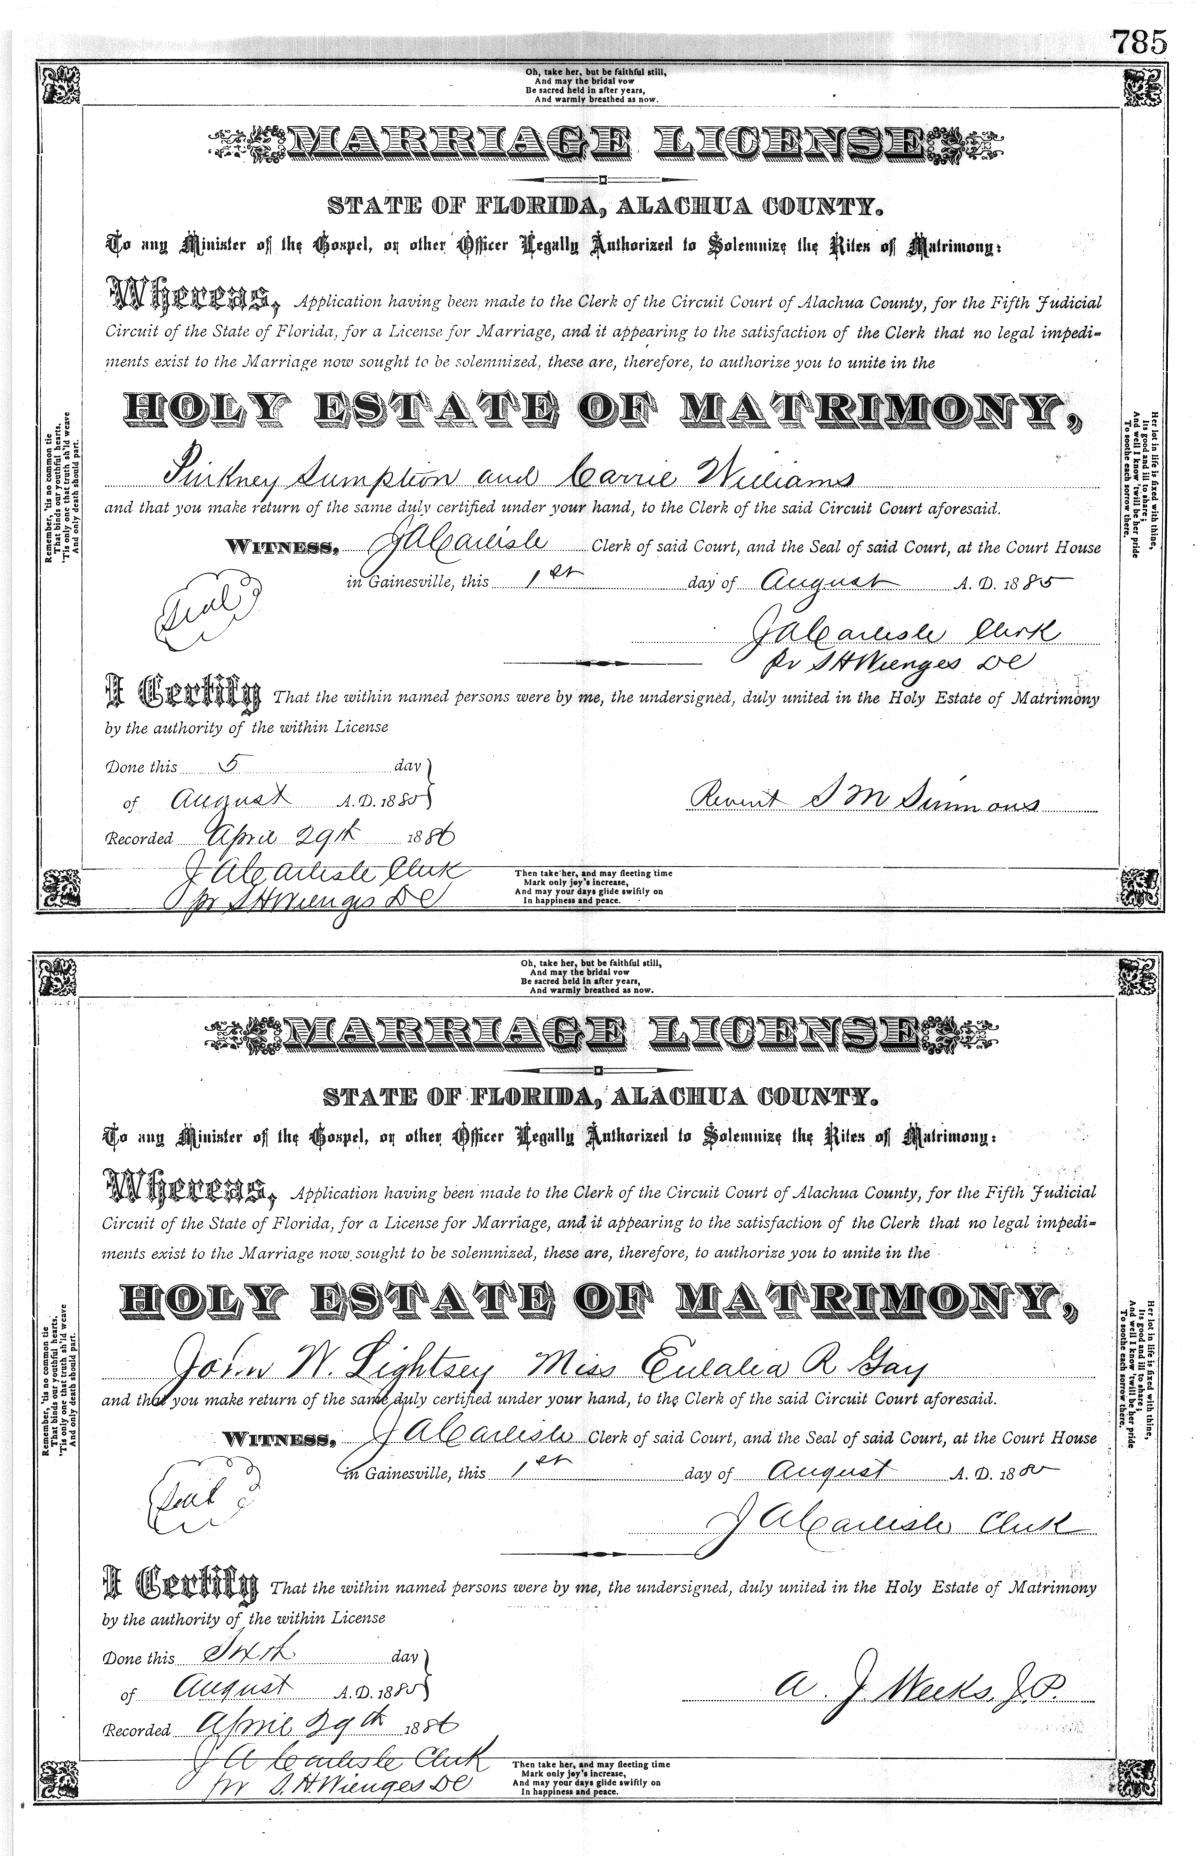 785
Oh, take her, but be faithful still,
And may the bridal vow
Be sacred held in after years,
And warmly breathed as now.
MARRIAGE LICENSE
STATE OF FLORIDA, ALACHUA COUNTY.
To any Minister of the Gospel, or other Officer Legally Authorized to Solemnize the Rites of Matrimony:
Whereas, Application having been made to the Clerk of the Circuit Court of Alachua County, for the Fifth Judicial
Circuit of the State of Florida, for a License for Marriage, and it appearing to the satisfaction of the Clerk that no legal impedi-
ments exist to the Marriage now sought to be solemnized, these are, therefore, to authorize you to unite in the
HOLY ESTATE OF MATRIMONY,
Pinkney Sumption and Carrie Williams
and that you make return of the same duly certified under your hand, to the Clerk of the said Circuit Court aforesaid.
WITNESS, J A Carlisle Clerk of said Court, and the Seal of said Court, at the Court House
in Gainesville, this 1st day of August A. D. 1885
Seal
J A Carlisle Clerk
pr S H Wienges DC
I Certify That the within named persons were by me, the undersigned, duly united in the Holy Estate of Matrimony
by the authority of the within License
Done this 5 day
of August A. D. 1885
Revent S M Simmons
Recorded April 29th 1886
J A Carlisle Clerk
pr S H Wienges DC
Remember, 'tis no common tie
That binds our youthful hearts,
'Tis only one that truth sh'ld weave
And only death should part.
Her lot in life is fixed with thine,
Its good and ill to share;
And well I know 'twill be her pride
To soothe each sorrow there.
Then take her, and may fleeting time
Mark only joy's increase,
And may your days glide swiftly on
In happiness and peace.
Oh, take her, but be faithful still,
And may the bridal vow
Be sacred held in after years,
And warmly breathed as now.
MARRIAGE LICENSE
STATE OF FLORIDA, ALACHUA COUNTY.
To any Minister of the Gospel, or other Officer Legally Authorized to Solemnize the Rites of Matrimony:
Whereas, Application having been made to the Clerk of the Circuit Court of Alachua County, for the Fifth Judicial
Circuit of the State of Florida, for a License for Marriage, and it appearing to the satisfaction of the Clerk that no legal impedi-
ments exist to the Marriage now sought to be solemnized, these are, therefore, to authorize you to unite in the
HOLY ESTATE OF MATRIMONY,
John W. Lightsey Miss Eulalia R Gay
and that you make return of the same duly certified under your hand, to the Clerk of the said Circuit Court aforesaid.
WITNESS, J A Carlisle Clerk of said Court, and the Seal of said Court, at the Court House
in Gainesville, this 1st day of August A. D. 1885
Seal
J A Carlisle Clerk
I Certify That the within named persons were by me, the undersigned, duly united in the Holy Estate of Matrimony
by the authority of the within License
Done this Sixth day
of August A. D. 1885
A. J. Weeks, J. P.
Recorded April 29th 1886
J A Carlisle Clerk
pr S. H. Wienges DC
Remember, 'tis no common tie
That binds our youthful hearts,
'Tis only one that truth sh'ld weave
And only death should part.
Her lot in life is fixed with thine,
Its good and ill to share;
And well I know 'twill be her pride
To soothe each sorrow there.
Then take her, and may fleeting time
Mark only joy's increase,
And may your days glide swiftly on
In happiness and peace.